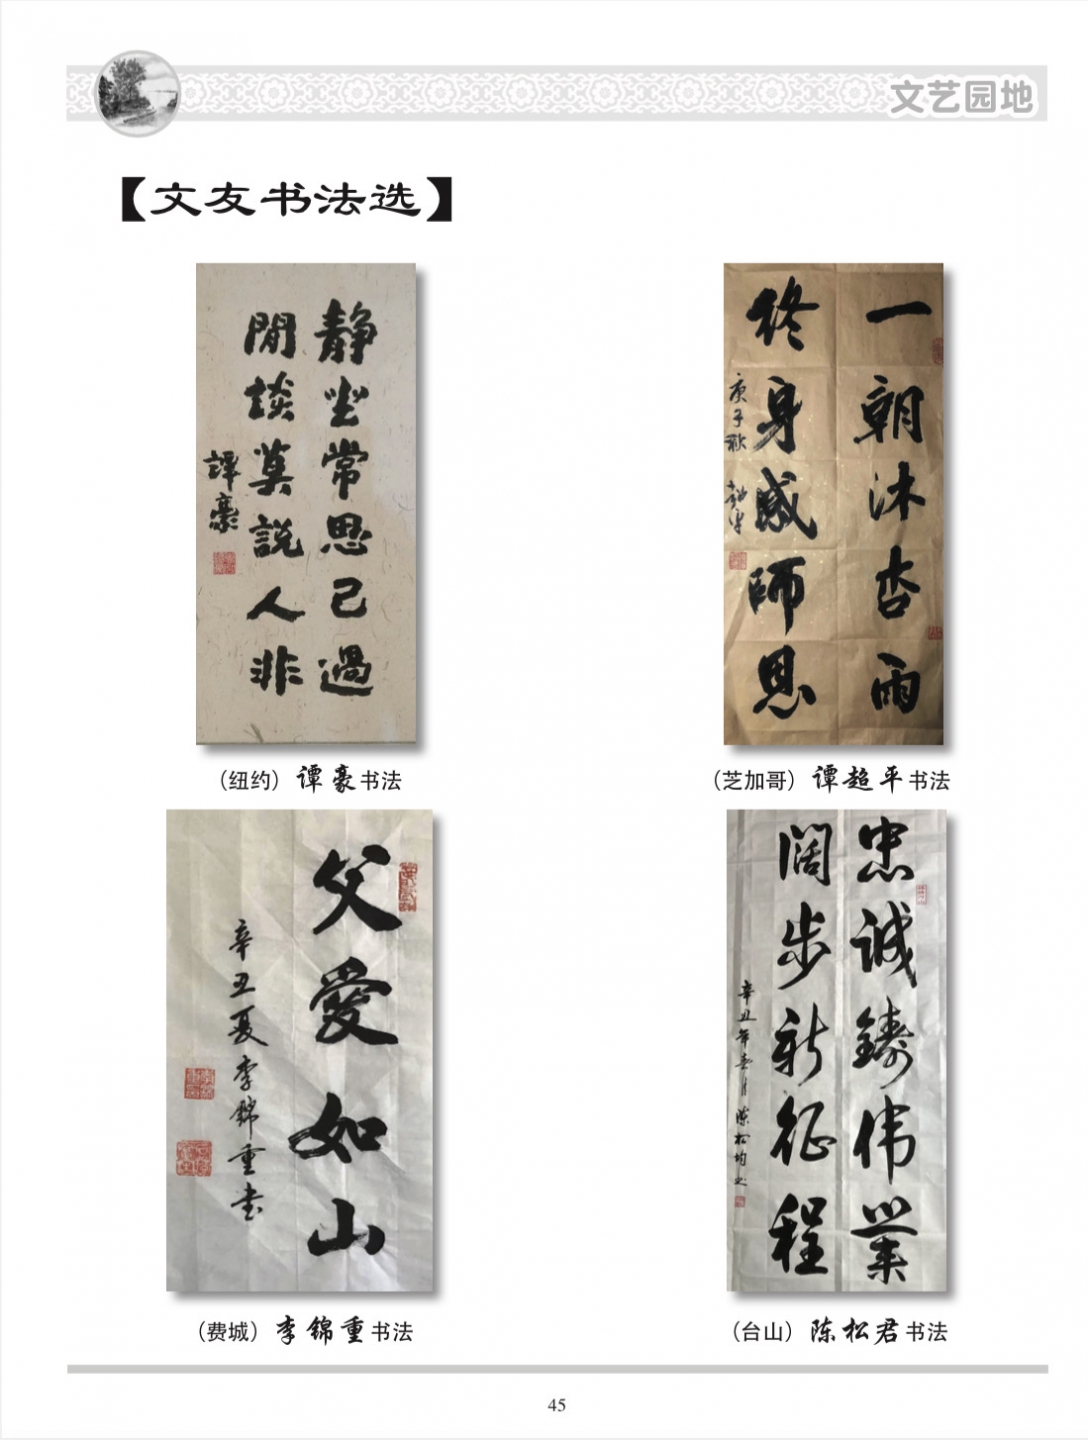 文艺园地
【文友书法选】
靜坐常思己過
閒談莫說人非
譚豪
（纽约）谭豪书法
一朝沐杏雨
终身感師恩
庚子秋
（芝加哥）谭超平书法
父愛如山
辛丑夏李錦重书
（费城）李锦重书法
忠诚鑄伟業
阔步新征程
辛丑年春月陈松均书
（台山）陈松君书法
45